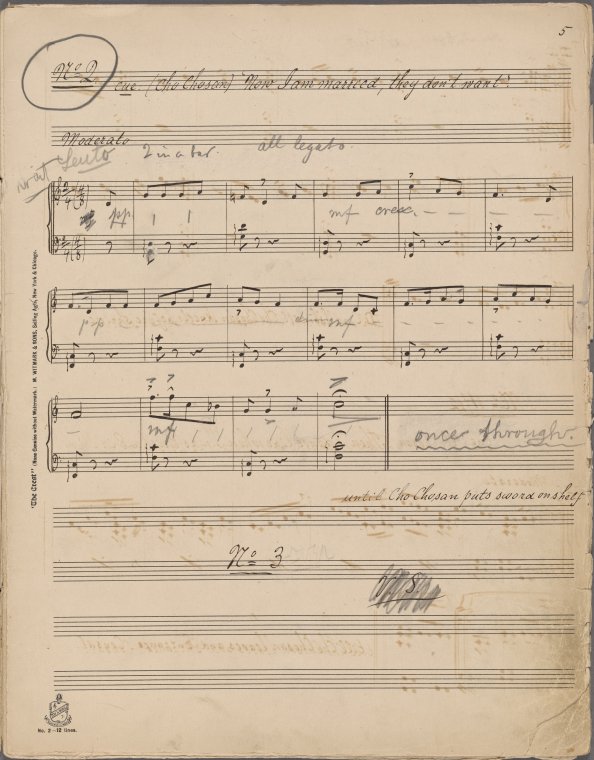 5
No 2
Cue. (Cho Chosan) "Now I am married, they don't want".
Moderato
not Lento 2 in a bar. all legato.
pp mf cresc. - - - -
pp mf - - - -
- mf
once through.
until Cho Chosan puts sword on shelf
No 3
"The Crest" (None Genuine without Watermark.) M. WITMARK & SONS, Selling Agts, New York & Chicago.
No. 2 - 12 lines.